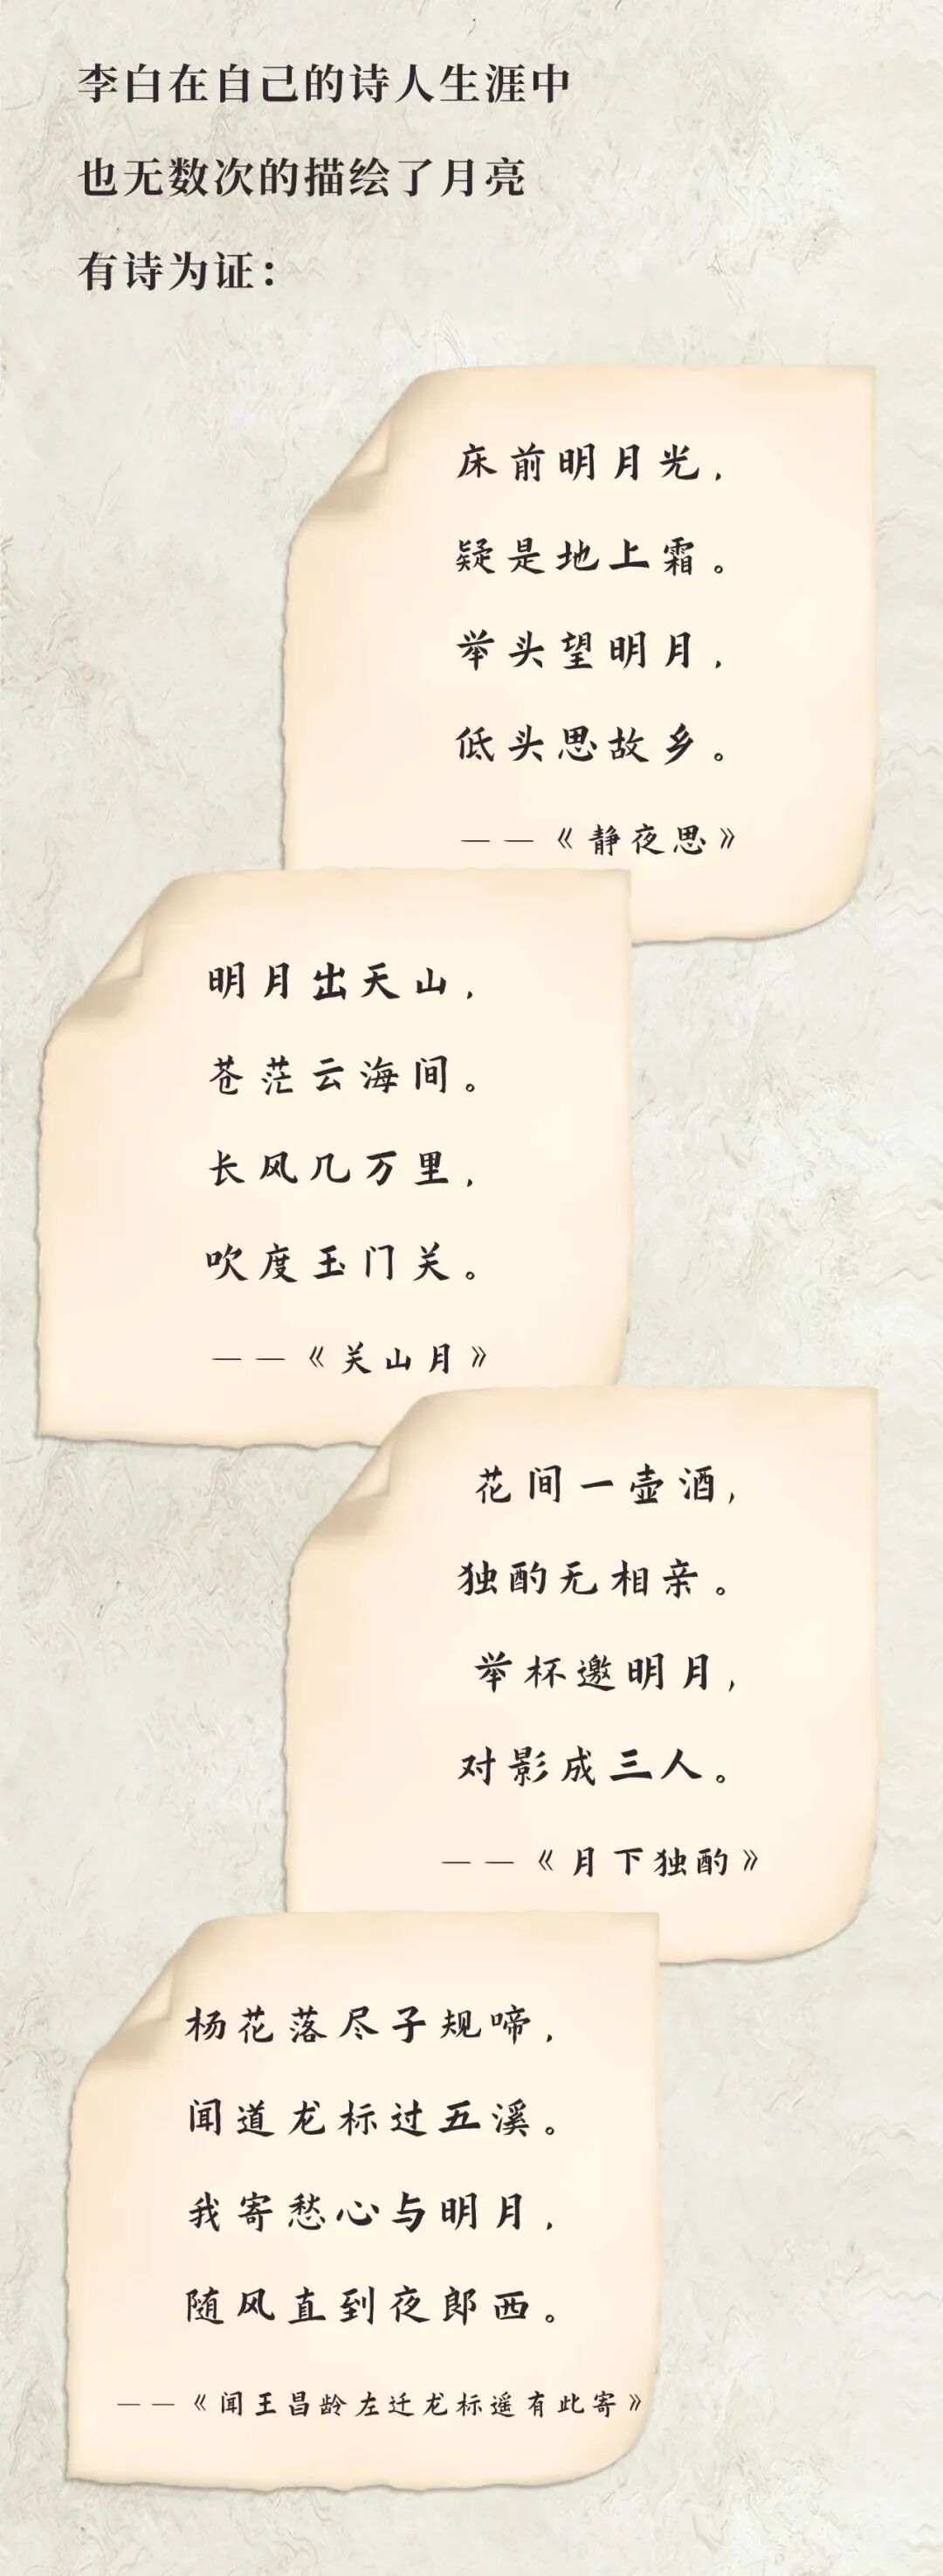 李白在自己的诗人生涯中
也无数次的描绘了月亮
有诗为证：
床前明月光，
疑是地上霜。
举头望明月，
低头思故乡。
——《静夜思》
明月出天山，
苍茫云海间。
长风几万里，
吹度玉门关。
——《关山月》
花间一壶酒，
独酌无相亲。
举杯邀明月，
对影成三人。
——《月下独酌》
杨花落尽子规啼，
闻道龙标过五溪。
我寄愁心与明月，
随风直到夜郎西。
——《闻王昌龄左迁龙标遥有此寄》